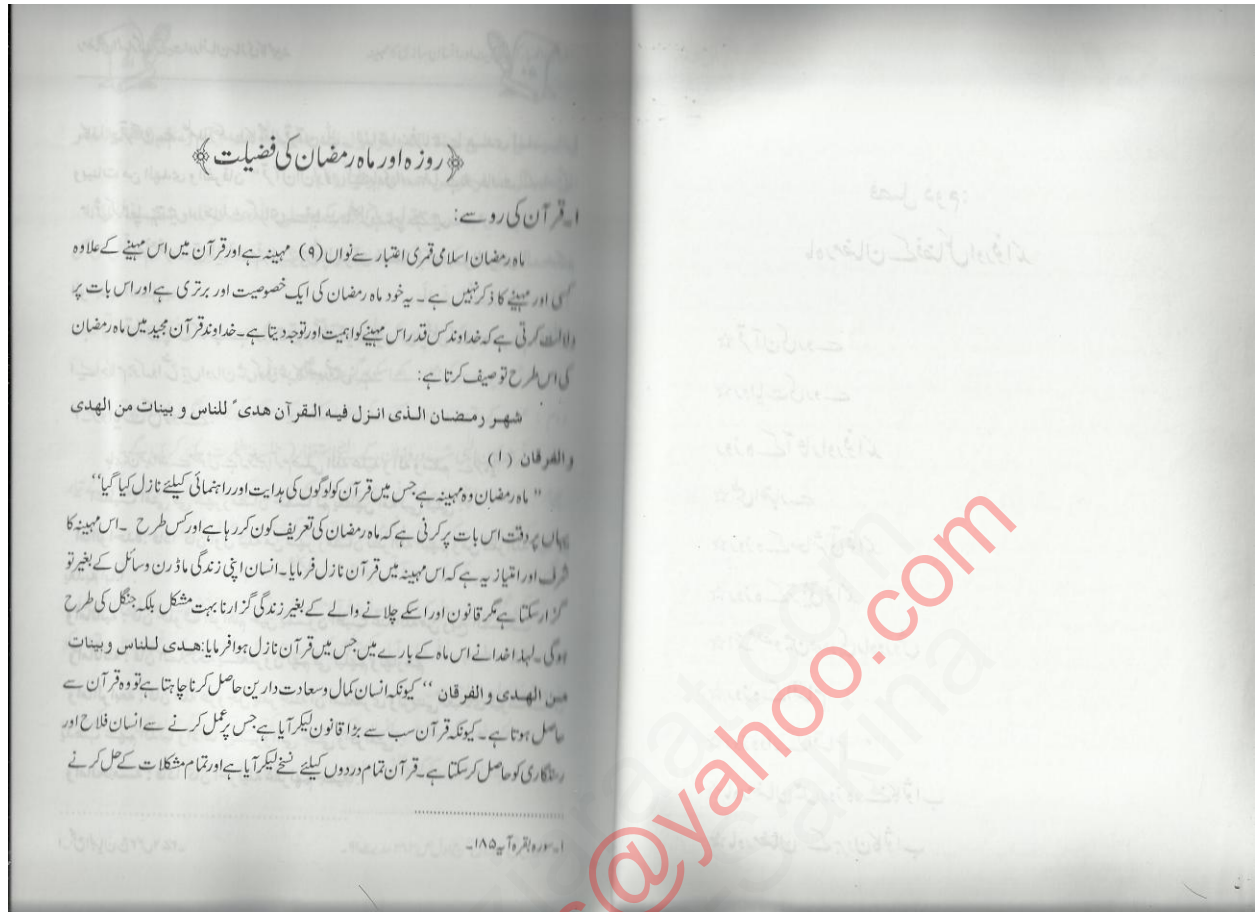 ﴿روزہ اور ماہ رمضان کی فضیلت﴾
۱۔قرآن کی روسے:
ماہ رمضان اسلامی قمری اعتبار سے نواں (۹) مہینہ ہے اور قرآن میں اس مہینے کے علاوہ
کسی اور مہینے کا ذکر نہیں ہے ۔ یہ خود ماہ رمضان کی ایک خصوصیت اور برتری ہے اور اس بات پر
دلالت کرتی ہے کہ خداوند کس قدر اس مہینے کو اہمیت اور توجہ دیتا ہے۔ خداوند قرآن مجید میں ماہ رمضان
کی اس طرح توصیف کرتا ہے:
شهر رمضان الذی انزل فیه القرآن هدی ً للناس و بینات من الهدی
والفرقان (۱)
" ماہ رمضان وہ مہینہ ہے جس میں قرآن کو لوگوں کی ہدایت اور راہنمائی کیلئے نازل کیا گیا"
یہاں پر دقت اس بات پر کرنی ہے کہ ماہ رمضان کی تعریف کون کر رہا ہے اور کس طرح ۔ اس مہینہ کا
شرف اور امتیاز یہ ہے کہ اس مہینہ میں قرآن نازل فرمایا۔ انسان اپنی زندگی ماڈرن وسائل کے بغیر تو
گزار سکتا ہے مگر قانون اور اسکے چلانے والے کے بغیر زندگی گزارنا بہت مشکل بلکہ جنگل کی طرح
ہوگی۔ لہذا خدا نے اس ماہ کے بارے میں جس میں قرآن نازل ہوا فرمایا: هدی للناس و بینات
من الهدی والفرقان " کیونکہ انسان کمال و سعادت دارین حاصل کرنا چاہتا ہے تو وہ قرآن سے
حاصل ہوتا ہے۔ کیونکہ قرآن سب سے بڑا قانون لیکر آیا ہے جس پر عمل کرنے سے انسان فلاح اور
رستگاری کو حاصل کر سکتا ہے۔ قرآن تمام دردوں کیلئے نسخے لیکر آیا ہے اور تمام مشکلات کے حل کرنے
۱۔سورہ بقرہ آیہ ۱۸۵۔
@yahoo.com